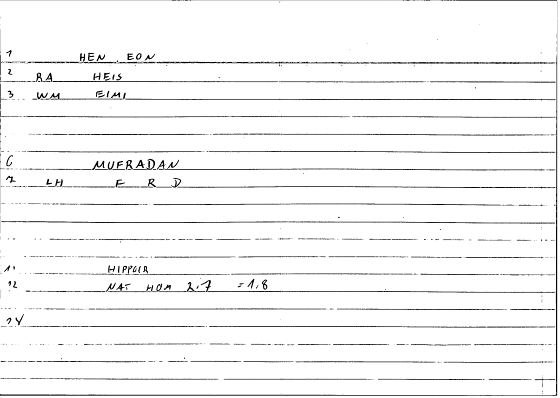 1 HEN EON
2 RA HEIS
3 WM EIMI
6 MUFRADAN
7 LH F R D
11 HIPPOIR
12 NAT HOM 2.7 =1.8
24